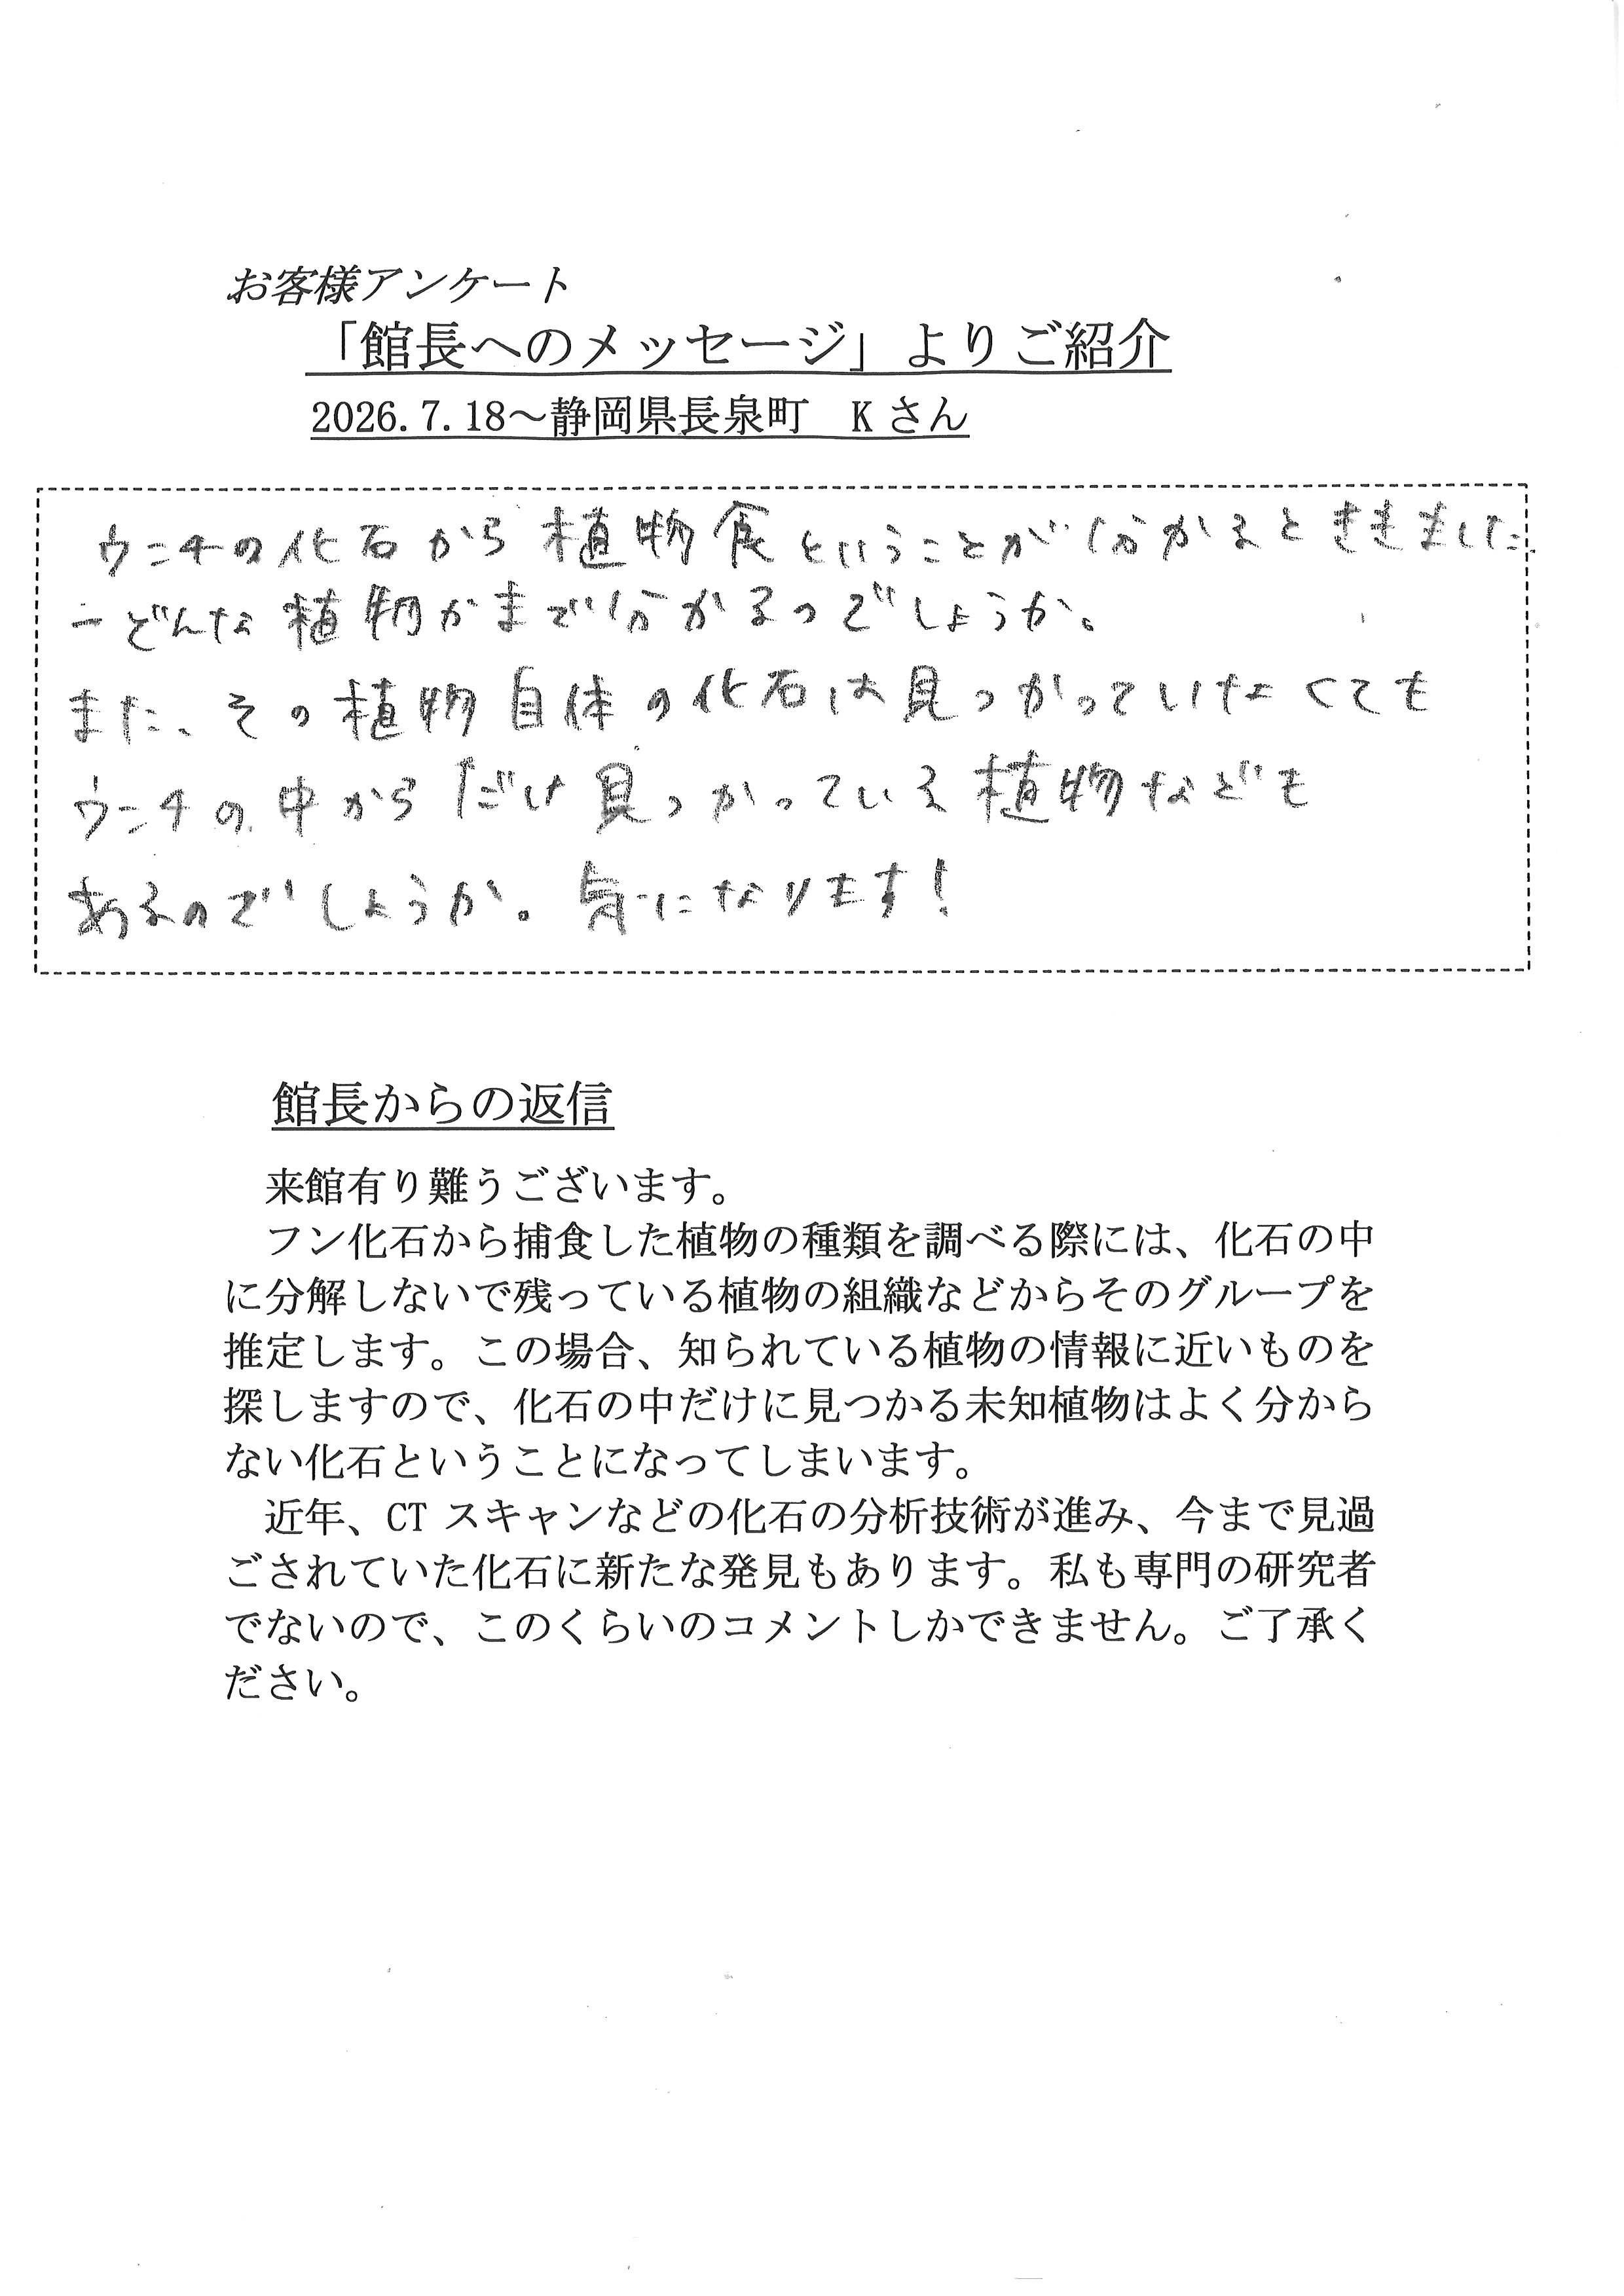 お客様アンケート
「館長へのメッセージ」よりご紹介
2026.7.18～静岡県長泉町　Kさん
ウンチの化石から植物食ということが分かるとききました。
どんな植物かまで分かるのでしょうか。
また、その植物自体の化石は見つかっていなくても
ウンチの中からだけ見つかっている植物なども
あるのでしょうか。気になります！
館長からの返信
来館有り難うございます。
フン化石から捕食した植物の種類を調べる際には、化石の中
に分解しないで残っている植物の組織などからそのグループを
推定します。この場合、知られている植物の情報に近いものを
探しますので、化石の中だけに見つかる未知植物はよく分から
ない化石ということになってしまいます。
近年、CTスキャンなどの化石の分析技術が進み、今まで見過
ごされていた化石に新たな発見もあります。私も専門の研究者
でないので、このくらいのコメントしかできません。ご了承く
ださい。